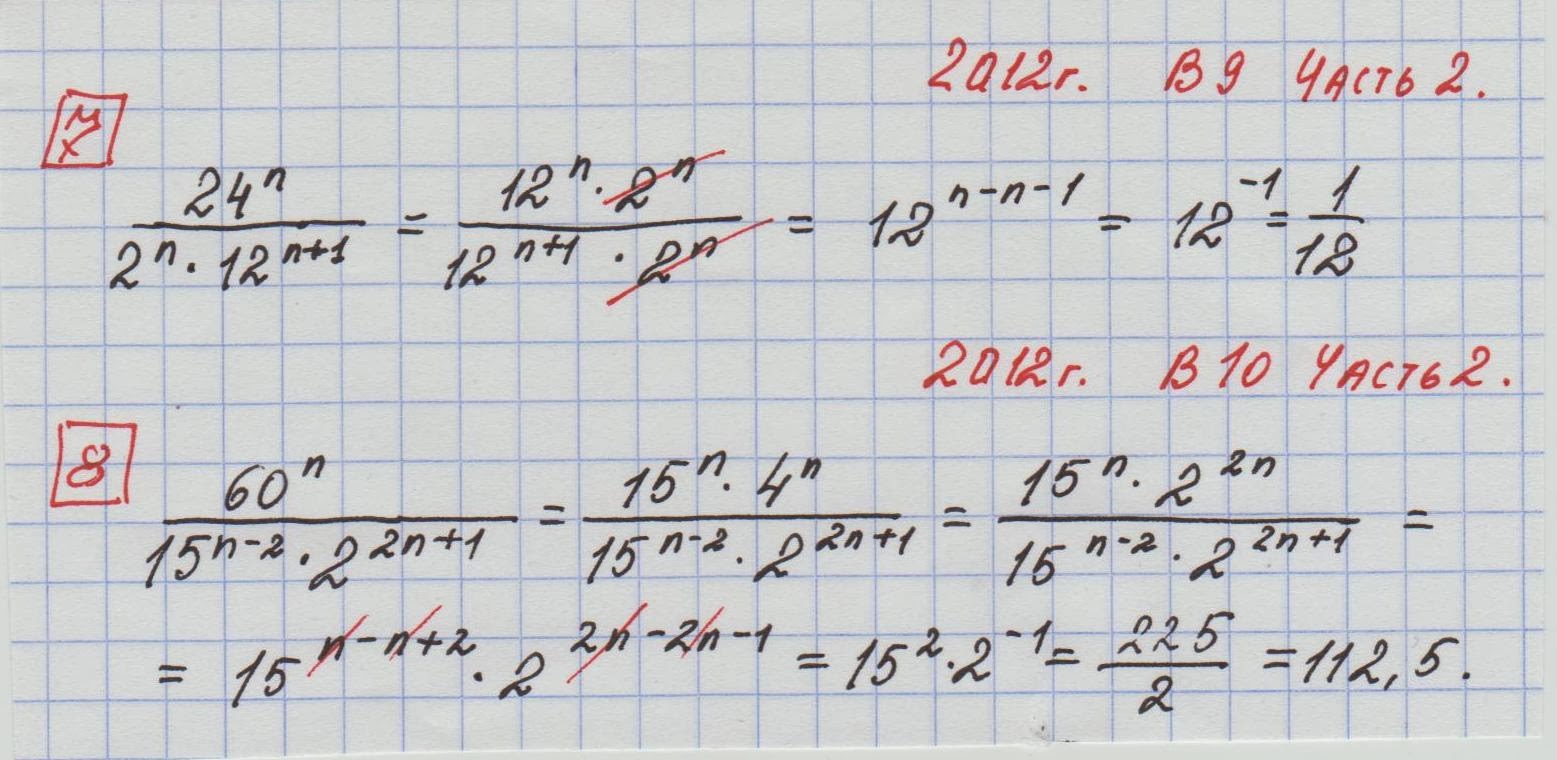 2012г. В 9 Часть 2.
7
24ⁿ / (2ⁿ · 12ⁿ⁺¹) = (12ⁿ · 2ⁿ) / (12ⁿ⁺¹ · 2ⁿ) = 12ⁿ⁻ⁿ⁻¹ = 12⁻¹ = 1/12
2012г. В 10 Часть 2.
8
60ⁿ / (15ⁿ⁻² · 2²ⁿ⁺¹) = (15ⁿ · 4ⁿ) / (15ⁿ⁻² · 2²ⁿ⁺¹) = (15ⁿ · 2²ⁿ) / (15ⁿ⁻² · 2²ⁿ⁺¹) =
= 15ⁿ⁻ⁿ⁺² · 2²ⁿ⁻²ⁿ⁻¹ = 15² · 2⁻¹ = 225/2 = 112,5.